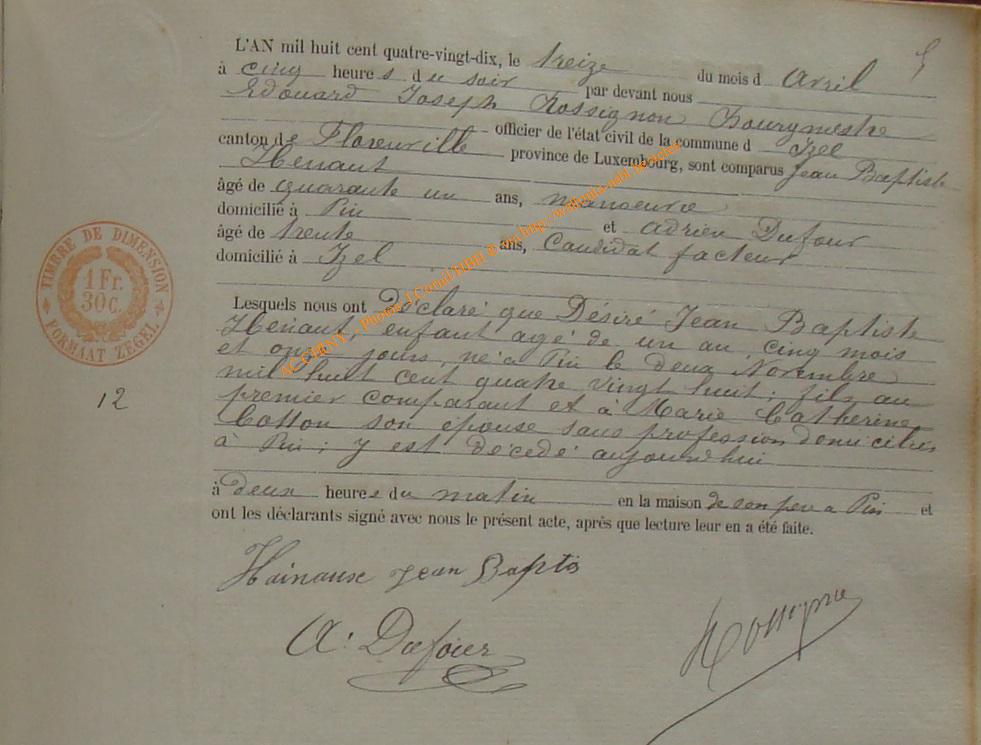 L'AN mil huit cent quatre-vingt-dix, le treize du mois d Avril
à cinq heures du soir par devant nous
Edouard Joseph Rossignon Bourgmestre
officier de l'état civil de la commune d Izel
canton de Florenville province de Luxembourg, sont comparus Jean Baptiste
Henaut
âgé de quarante un ans, manoeuvre
domicilié à Pin et Adrien Dufour
âgé de trente ans, Candidat facteur
domicilié à Izel
Lesquels nous ont Déclaré que Désiré Jean Baptiste
Henaut, enfant agé de un an, cinq mois
et onze jours, né à Pin le deux Novembre
mil huit cent quatre vingt huit; fils au
premier comparant et à Marie Catherine
Cotton son épouse sans profession domiciliés
à Pin; y est décédé aujourdhui
à deux heures du matin en la maison de son père a Pin et
ont les déclarants signé avec nous le présent acte, après que lecture leur en a été faite.
Hainause Jean Baptis
A. Dufoier
TIMBRE DE DIMENSION
1 Fr.
30c.
FORMAAT ZEGEL
12